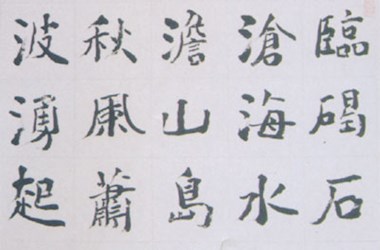 臨碣石
滄海水
澹山島
秋風蕭
波湧起